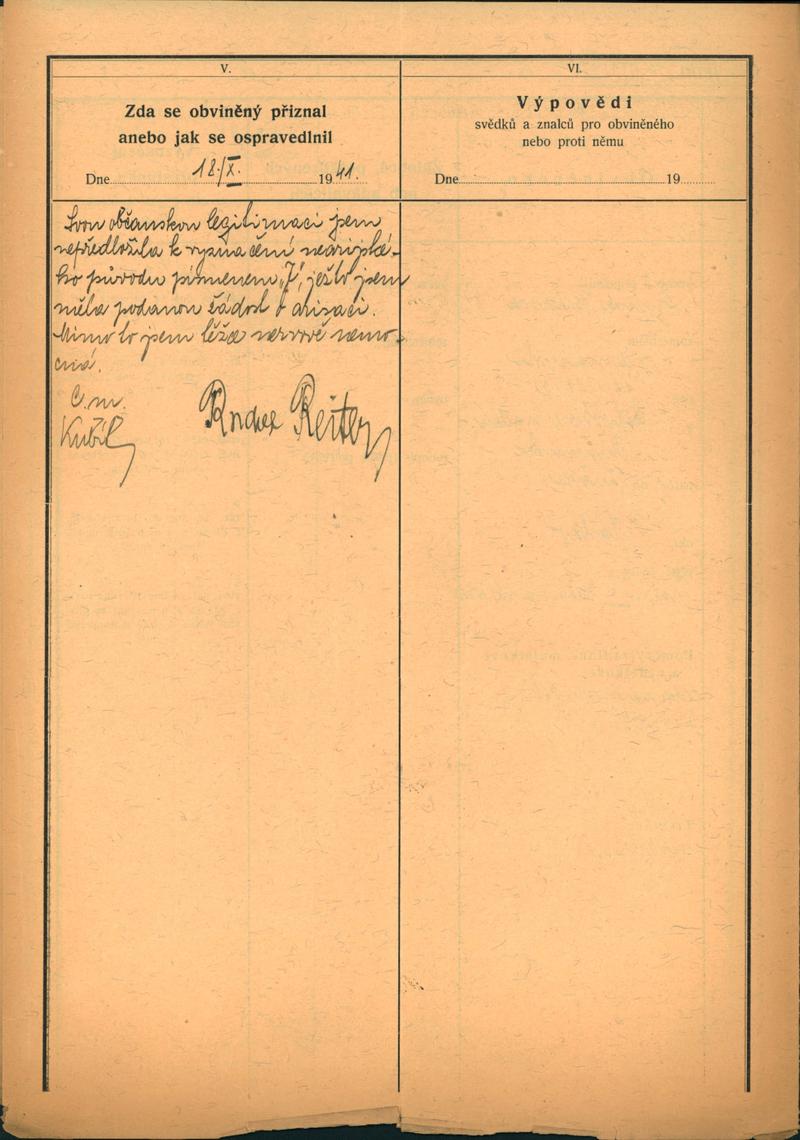 V.
Zda se obviněný přiznal
anebo jak se ospravedlnil
Dne 18./X. 1941.
Svou občanskou legitimaci jsem
nepředložila k vyznačení nearijské-
ho původu písmenem „J", ježto jsem
měla podanou žádost o arisaci.
Mimo to jsem těžce nervově nemo-
cná.
C. m.
Reiter
VI.
Výpovědi
svědků a znalců pro obviněného
nebo proti němu
Dne 19